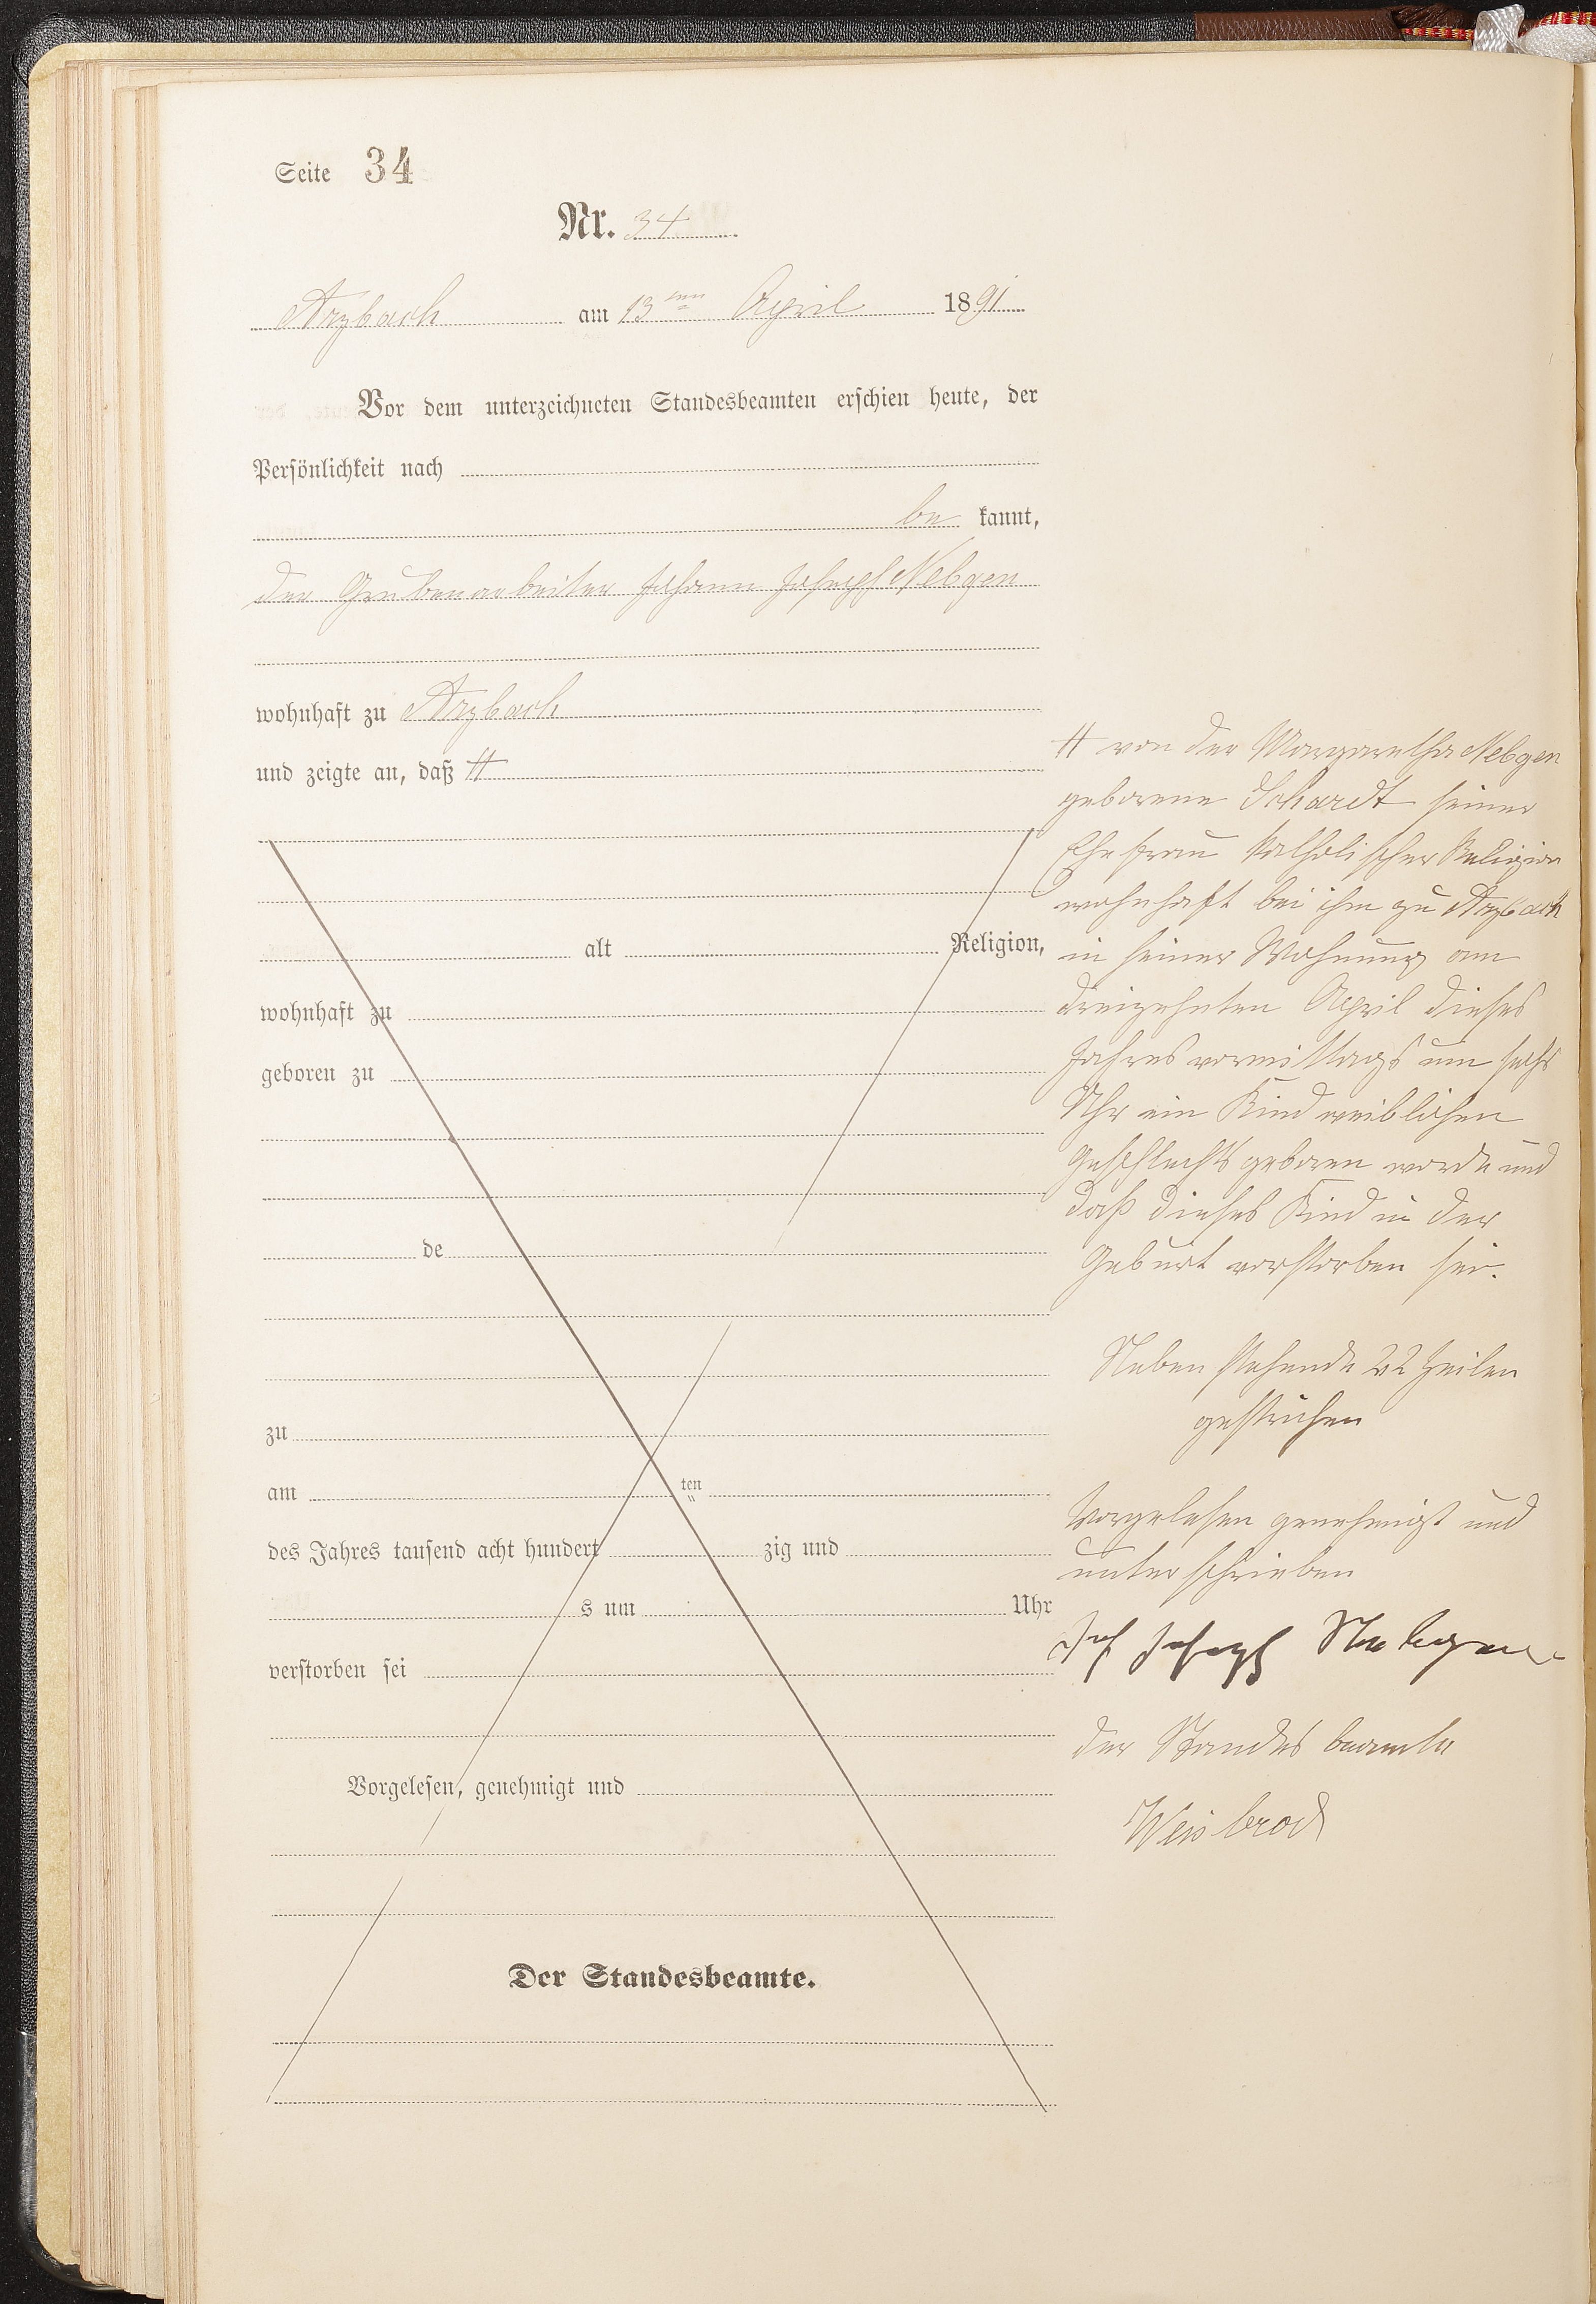 Seite 34
Nr. 34
Arzbach am 13ten April 1891
Vor dem unterzeichneten Standesbeamten erschien heute, der
Persönlichkeit nach
be kannt,
der Grubenarbeiter Johann Joseph Nebgen
wohnhaft zu Arzbach
und zeigte an, daß #
alt Religion,
wohnhaft zu
geboren zu
de
zu
am ten
des Jahres tausend acht hundert zig und
s um Uhr
verstorben sei
Vorgelesen, genehmigt und
Der Standesbeamte.
# von der Margaretha Nebgen
geborene Schardt seiner
Ehefrau katholischer Religion
wohnhaft bei ihm zu Arzbach
in seiner Wohnung am
dreizehnten April dieses
Jahres vormittags um sechs
Uhr ein Kind weiblichen
Geschlechts geboren worde und
daß dieses Kind in der
Geburt verstorben sei.
Neben stehende 22 Zeilen
gestrichen
Vorgelesen genehmigt und
unterschrieben
Joh Joseph Nebgen
der Standesbeamte
Weisbrod